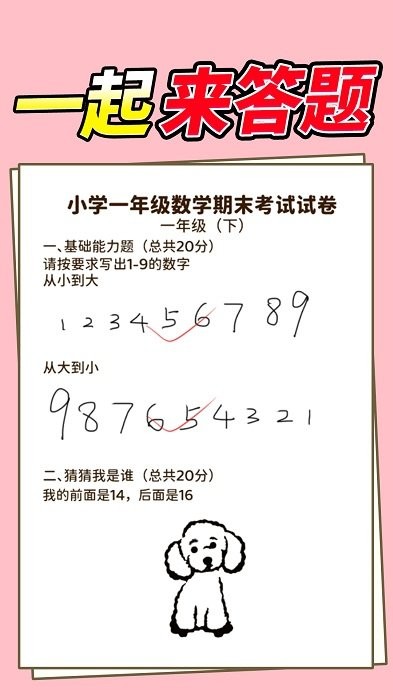 一起来答题
小学一年级数学期末考试试卷
一年级（下）
一、基础能力题（总共20分）
请按要求写出1-9的数字
从小到大
1 2 3 4 5 6 7 8 9
从大到小
9 8 7 6 5 4 3 2 1
二、猜猜我是谁（总共20分）
我的前面是14，后面是16